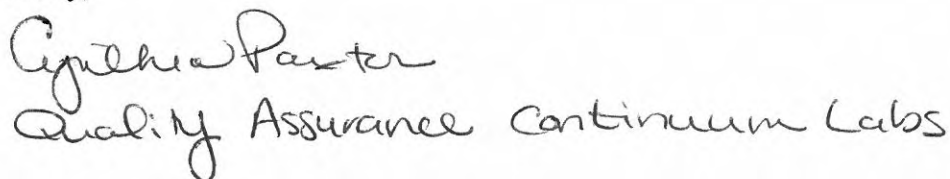 Cynthia Paxton
Quality Assurance Continuum Labs